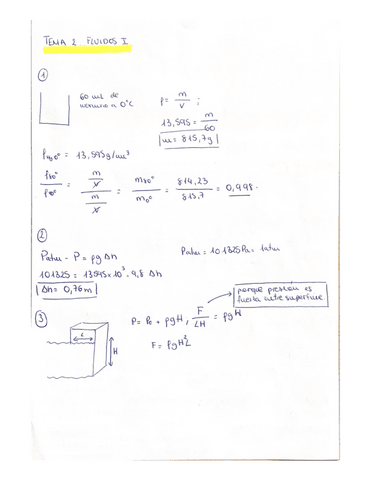 TEMA 2 FLUIDOS I
1
60 mL de
mercurio a 0°C
ρ = m/V ;
13,595 = m/60
|m = 815,7g|
ρHg0° = 13,595g/cm³
ρ80°/ρ0° = m/V / m/V = m80°/m0° = 814,23/815,7 = 0,998.
2
Patm - P = ρg Δh
Patm = 101325Pa = 1atm
101325 = 13595×10³ · 9,8 Δh
|Δh = 0,76m|
porque presión es
fuerza entre superficie
3
L
H
P = P₀ + ρgH, F/LH = ρgH
F = ρgH²L